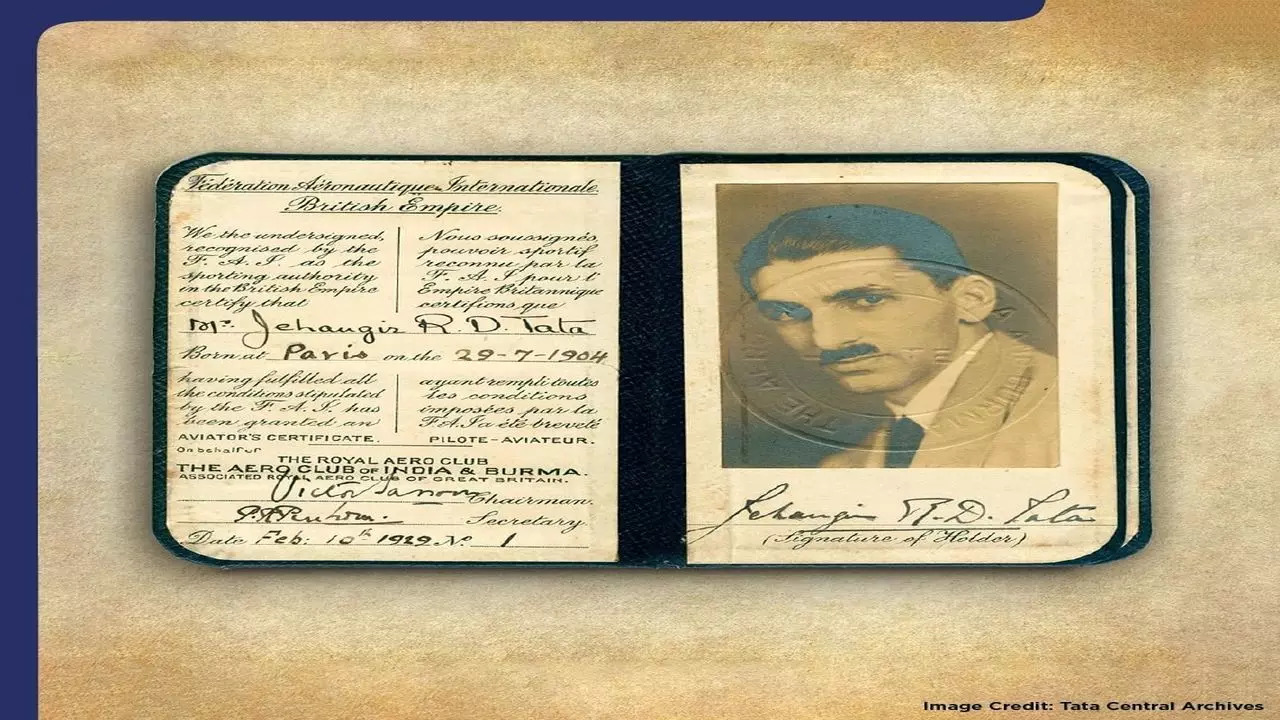 Fédération Aéronautique Internationale
British Empire.
We the undersigned,
recognised by the
F. A. I. as the
sporting authority
in the British Empire
certify that
Nous soussignés,
pouvoir sportif
reconnu par la
F. A. I pour l'
Empire Britannique
certifions que
Mr. Jehangir R. D. Tata
Born at Paris on the 29-7-1904
having fulfilled all
the conditions stipulated
by the F. A. I. has
been granted an
AVIATOR'S CERTIFICATE.
ayant rempli toutes
les conditions
imposées par la
F.A.I a été breveté
PILOTE-AVIATEUR.
On behalf of
THE ROYAL AERO CLUB
THE AERO CLUB OF INDIA & BURMA.
ASSOCIATED ROYAL AERO CLUB OF GREAT BRITAIN.
Victor Sassoon Chairman.
Secretary.
Date Feb: 10th 1929 No. 1
THE AERO
Jehangir R. D. Tata
(Signature of Holder)
Image Credit: Tata Central Archives